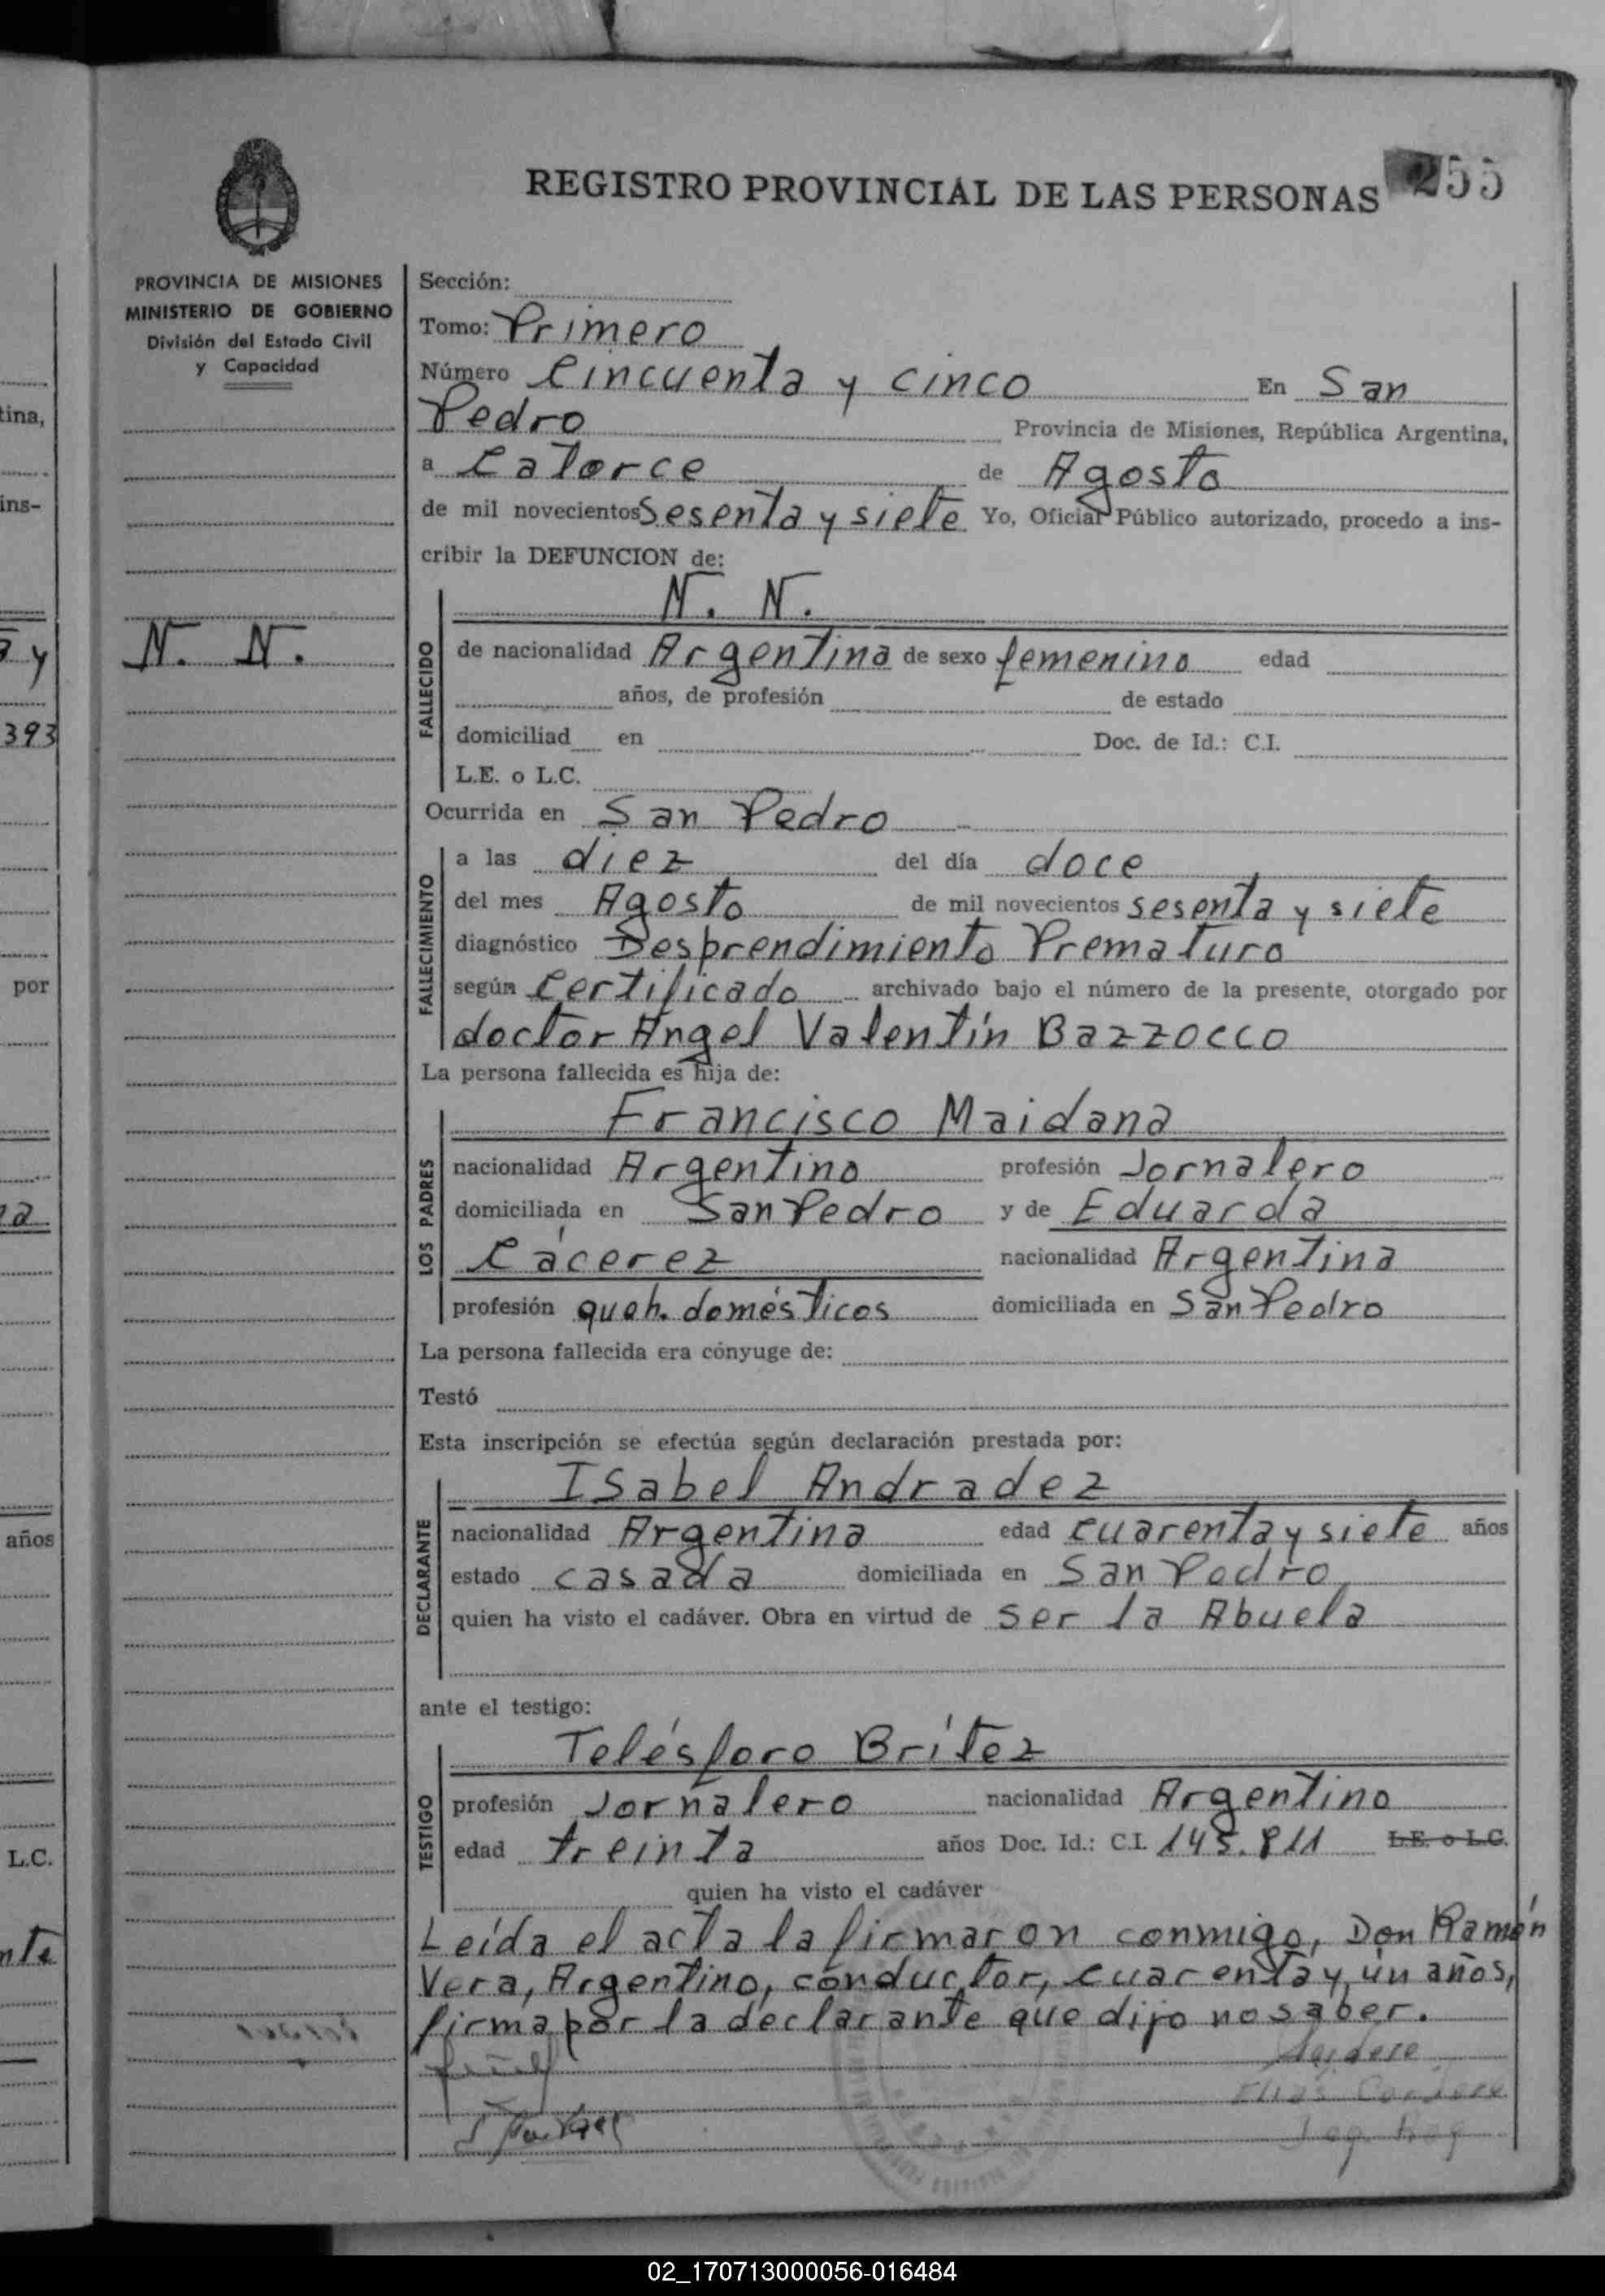 REGISTRO PROVINCIAL DE LAS PERSONAS 255
PROVINCIA DE MISIONES
MINISTERIO DE GOBIERNO
División del Estado Civil
y Capacidad
N. N.
Sección:
Tomo: Primero
Número Cincuenta y cinco En San
Pedro Provincia de Misiones, República Argentina,
a Catorce de Agosto
de mil novecientos Sesenta y siete Yo, Oficial Público autorizado, procedo a ins-
cribir la DEFUNCION de:
N. N.
FALLECIDO
de nacionalidad Argentina de sexo femenino edad
años, de profesión de estado
domiciliad en Doc. de Id.: C.I.
L.E. o L.C.
Ocurrida en San Pedro
FALLECIMIENTO
a las diez del día doce
del mes Agosto de mil novecientos sesenta y siete
diagnóstico Desprendimiento Prematuro
según Certificado archivado bajo el número de la presente, otorgado por
doctor Angel Valentín Bazzocco
La persona fallecida es hija de:
LOS PADRES
Francisco Maidana
nacionalidad Argentino profesión Jornalero
domiciliada en San Pedro y de Eduarda
Cácerez nacionalidad Argentina
profesión queh. domésticos domiciliada en San Pedro
La persona fallecida era cónyuge de:
Testó
Esta inscripción se efectúa según declaración prestada por:
DECLARANTE
Isabel Andradez
nacionalidad Argentina edad cuarenta y siete años
estado casada domiciliada en San Pedro
quien ha visto el cadáver. Obra en virtud de ser la Abuela
ante el testigo:
TESTIGO
Telésforo Brítez
profesión Jornalero nacionalidad Argentino
edad treinta años Doc. Id.: C.I. 145.811 L.E. o L.C.
quien ha visto el cadáver
Leída el acta la firmaron conmigo, Don Ramón
Vera, Argentino, conductor, cuarenta y un años,
firma por la declarante que dijo no saber.
tina,
ins-
y
393
por
años
L.C.
02_170713000056-016484